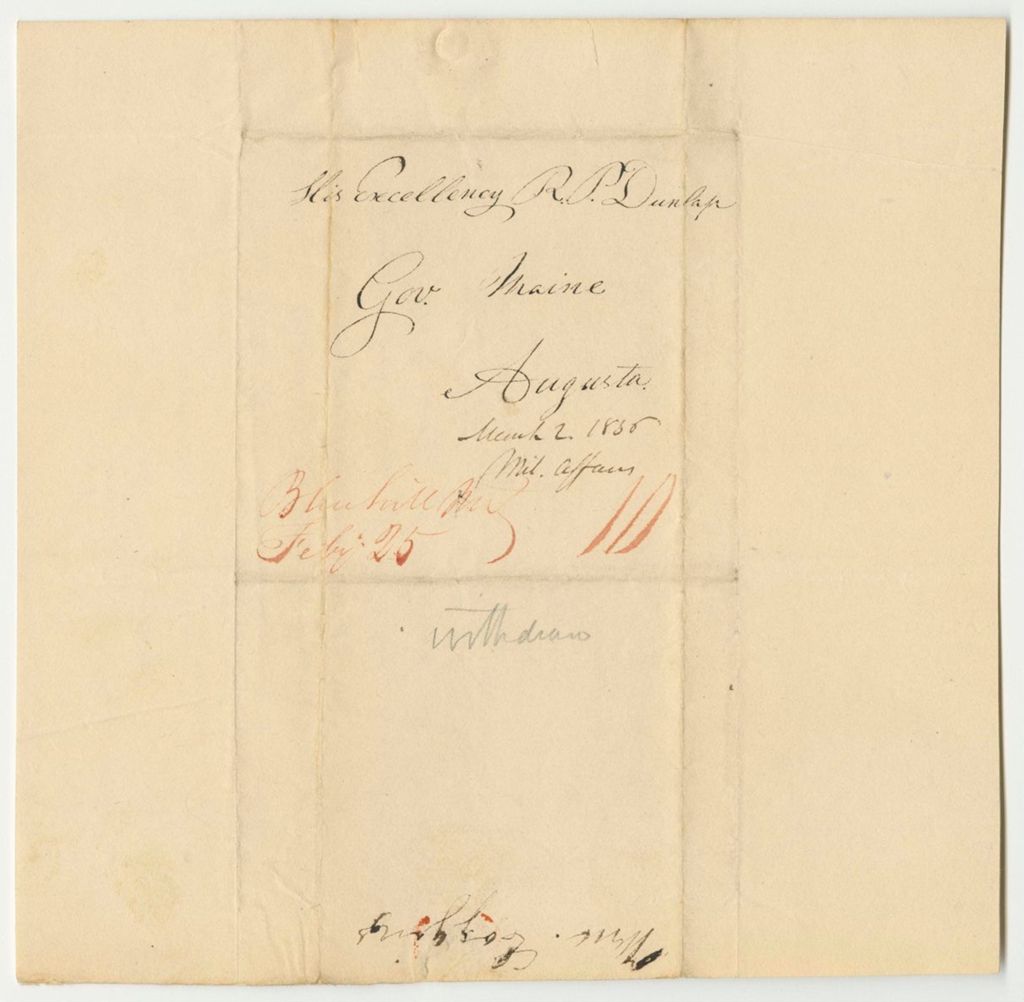 His Excellency R. P. Dunlap
Gov. Maine
Augusta.
March 2. 1836
Mil. Affairs
Bluehill Me
Feby 25
10
withdrawn
Wm.